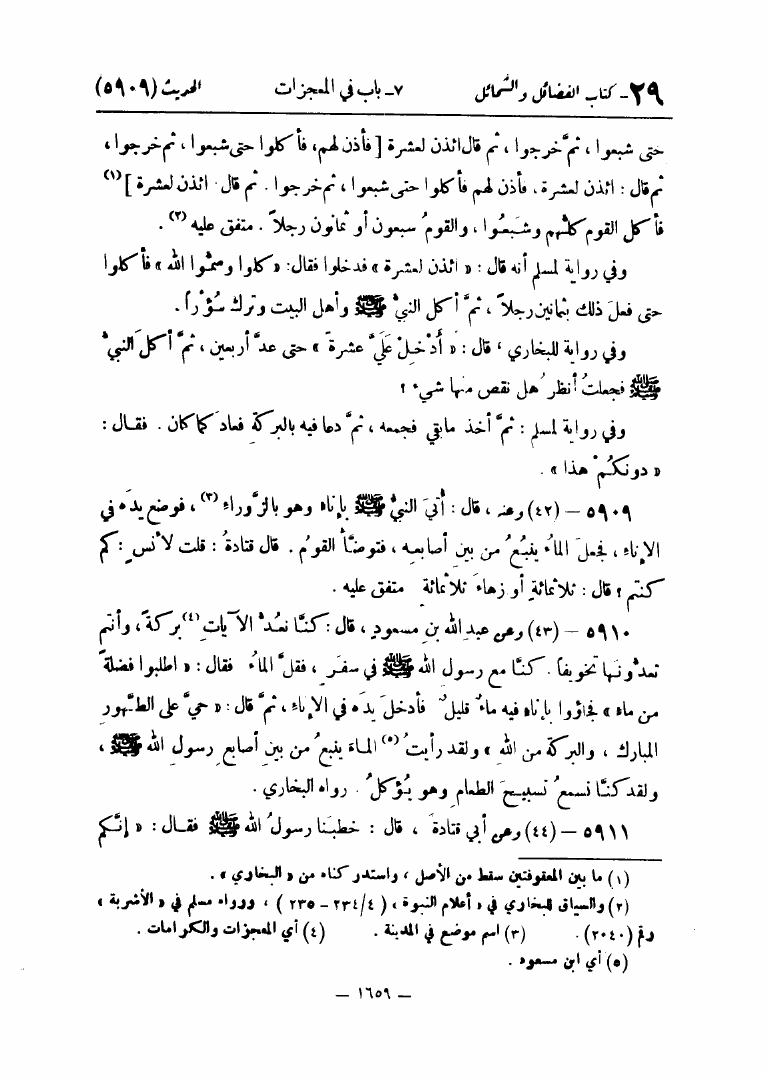 ٢٩- كتاب الفضائل والشمائل ٧- باب في المعجزات الحديث (٥٩٠٩)
حتى شبعوا ، ثمَّ خرجوا ، ثم قال ائذن لعشرة [ فأذن لهم، فأكلوا حتى شبعوا ، ثم خرجوا ،
ثم قال : ائذن لعشرة ، فأذن لهم فأكلوا حتى شبعوا ، ثم خرجوا . ثم قال ائذن لعشرة ] (١)
فأكل القوم كلُّهم وشَبعُوا ، والقومُ سبعون أو ثمانون رجلاً . متفق عليه (٢) .
وفي رواية لمسلم أنه قال : « ائذن لعشرة » فدخلوا فقال: «كلوا وسمُّوا الله » فأكلوا
حتى فعلَ ذلك بثمانين رجلاً ، ثمَّ أكل النبيُّ ﷺ وأهل البيت وترك سُؤْراً .
وفي رواية للبخاري ، قال : « أَدْخِلْ عَلَيَّ عشرة » حتى عدَّ أربعين ، ثمَّ أكلَ النبيُّ
ﷺ فجعلتُ أنظرُ هل نقص منها شيء ؟
وفي رواية لمسلم : ثمَّ أخذ مابقي فجمعه ، ثمَّ دعا فيه بالبركةِ فعادَ كما كان . فقـال :
« دونكُمْ هذا » .
٥٩٠٩ – (٤٢) وعنه ، قال : أُتيَ النبيُّ ﷺ بإناء وهو بالزَّوراء (٣) ، فوضع يدَه في
الإناءِ ، فجعلَ الماءُ ينبُعُ من بينِ أصابعِه ، فتوضَّأ القومُ . قال قتادةُ : قلت لأنسٍ : كم
كنتم ؟ قال : ثلاثمائةٍ أو زهاءَ ثلاثمائة متفق عليه .
٥٩١٠ – (٤٣) وعن عبد الله بنِ مسعودٍ ، قال : كنَّا نعُدُّ الآيات (٤) بركةً ، وأنتم
تعدُّونها تخويفاً . كنَّا مع رسول الله ﷺ في سفَرٍ ، فقلَّ الماءُ فقال : « اطلبوا فضلةً
من ماء » فجاؤوا بإناءٍ فيه ماءٌ قليلٌ فأدخلَ يدَه في الإناءِ ، ثمَّ قال : « حيَّ على الطَّهورِ
المبارك ، والبركة من الله » ولقد رأيتُ (٥) الماءَ ينبعُ من بينِ أصابع رسولِ الله ﷺ ،
ولقد كنَّا نسمعُ تسبيحَ الطعام وهو يُؤكلُ . رواه البخاري .
٥٩١١ – (٤٤) وعن أبي قتادةَ ، قال : خطبَنا رسولُ الله ﷺ فقـال : « إنَّكم
(١) ما بين المعقوفتين سقط من الأصل ، واستدركناه من « البخاري » .
(٢) والسياق للبخاري في « أعلام النبوة ، ( ٤/ ٢٣٤ – ٢٣٥ ) ، ورواه مسلم في « الأشربة »
رقم (٢٠٤٠) . (٣) اسم موضع في المدينة . (٤) أي المعجزات والكرامات .
(٥) أي ابن مسعود .
– ١٦٥٩ –